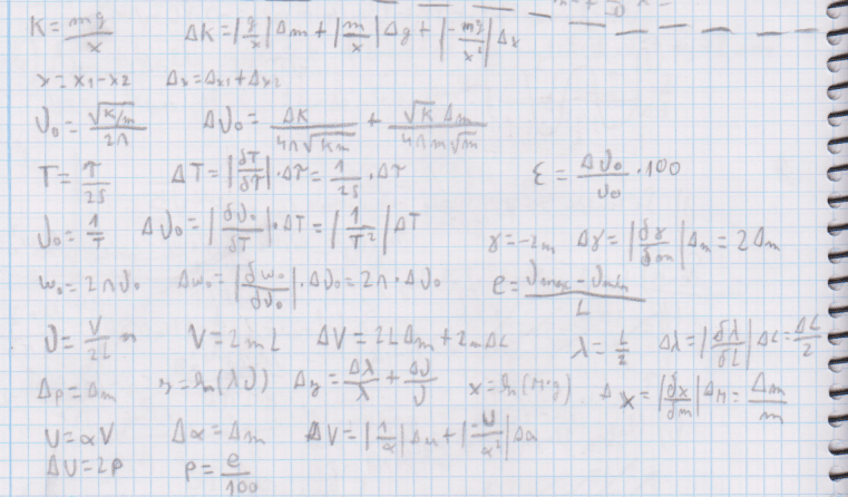 K = mg/x ΔK = |g/x| Δm + |m/x| Δg + |-mg/x²| Δx
x = x1 - x2 Δx = Δx1 + Δx2
ν₀ = √(K/m)/2π Δν₀ = ΔK/(4π√(km)) + √K Δm/(4πm√m)
T = τ/25 ΔT = |δT/δτ| · Δτ = 1/25 · Δτ ε = Δν₀/ν₀ · 100
ν₀ = 1/T Δν₀ = |δν₀/δT| · ΔT = |1/T²| ΔT
γ = -2m Δγ = |δγ/δm| Δm = 2Δm
ω₀ = 2πν₀ Δω₀ = |δω₀/δν₀| · Δν₀ = 2π · Δν₀ e = (νmax - νmin)/L
ν = V/2L V = 2mL ΔV = 2LΔm + 2mΔL λ = L/2 Δλ = |δλ/δL| ΔL = ΔL/2
Δp = Δm y = ln(λν) Δy = Δλ/λ + Δν/ν x = ln(M·g) Δx = |δx/δm| ΔM = Δm/m
U = αV Δα = Δm ΔV = |1/α| Δu + |-U/α²| Δα
ΔU = 2P P = e/100